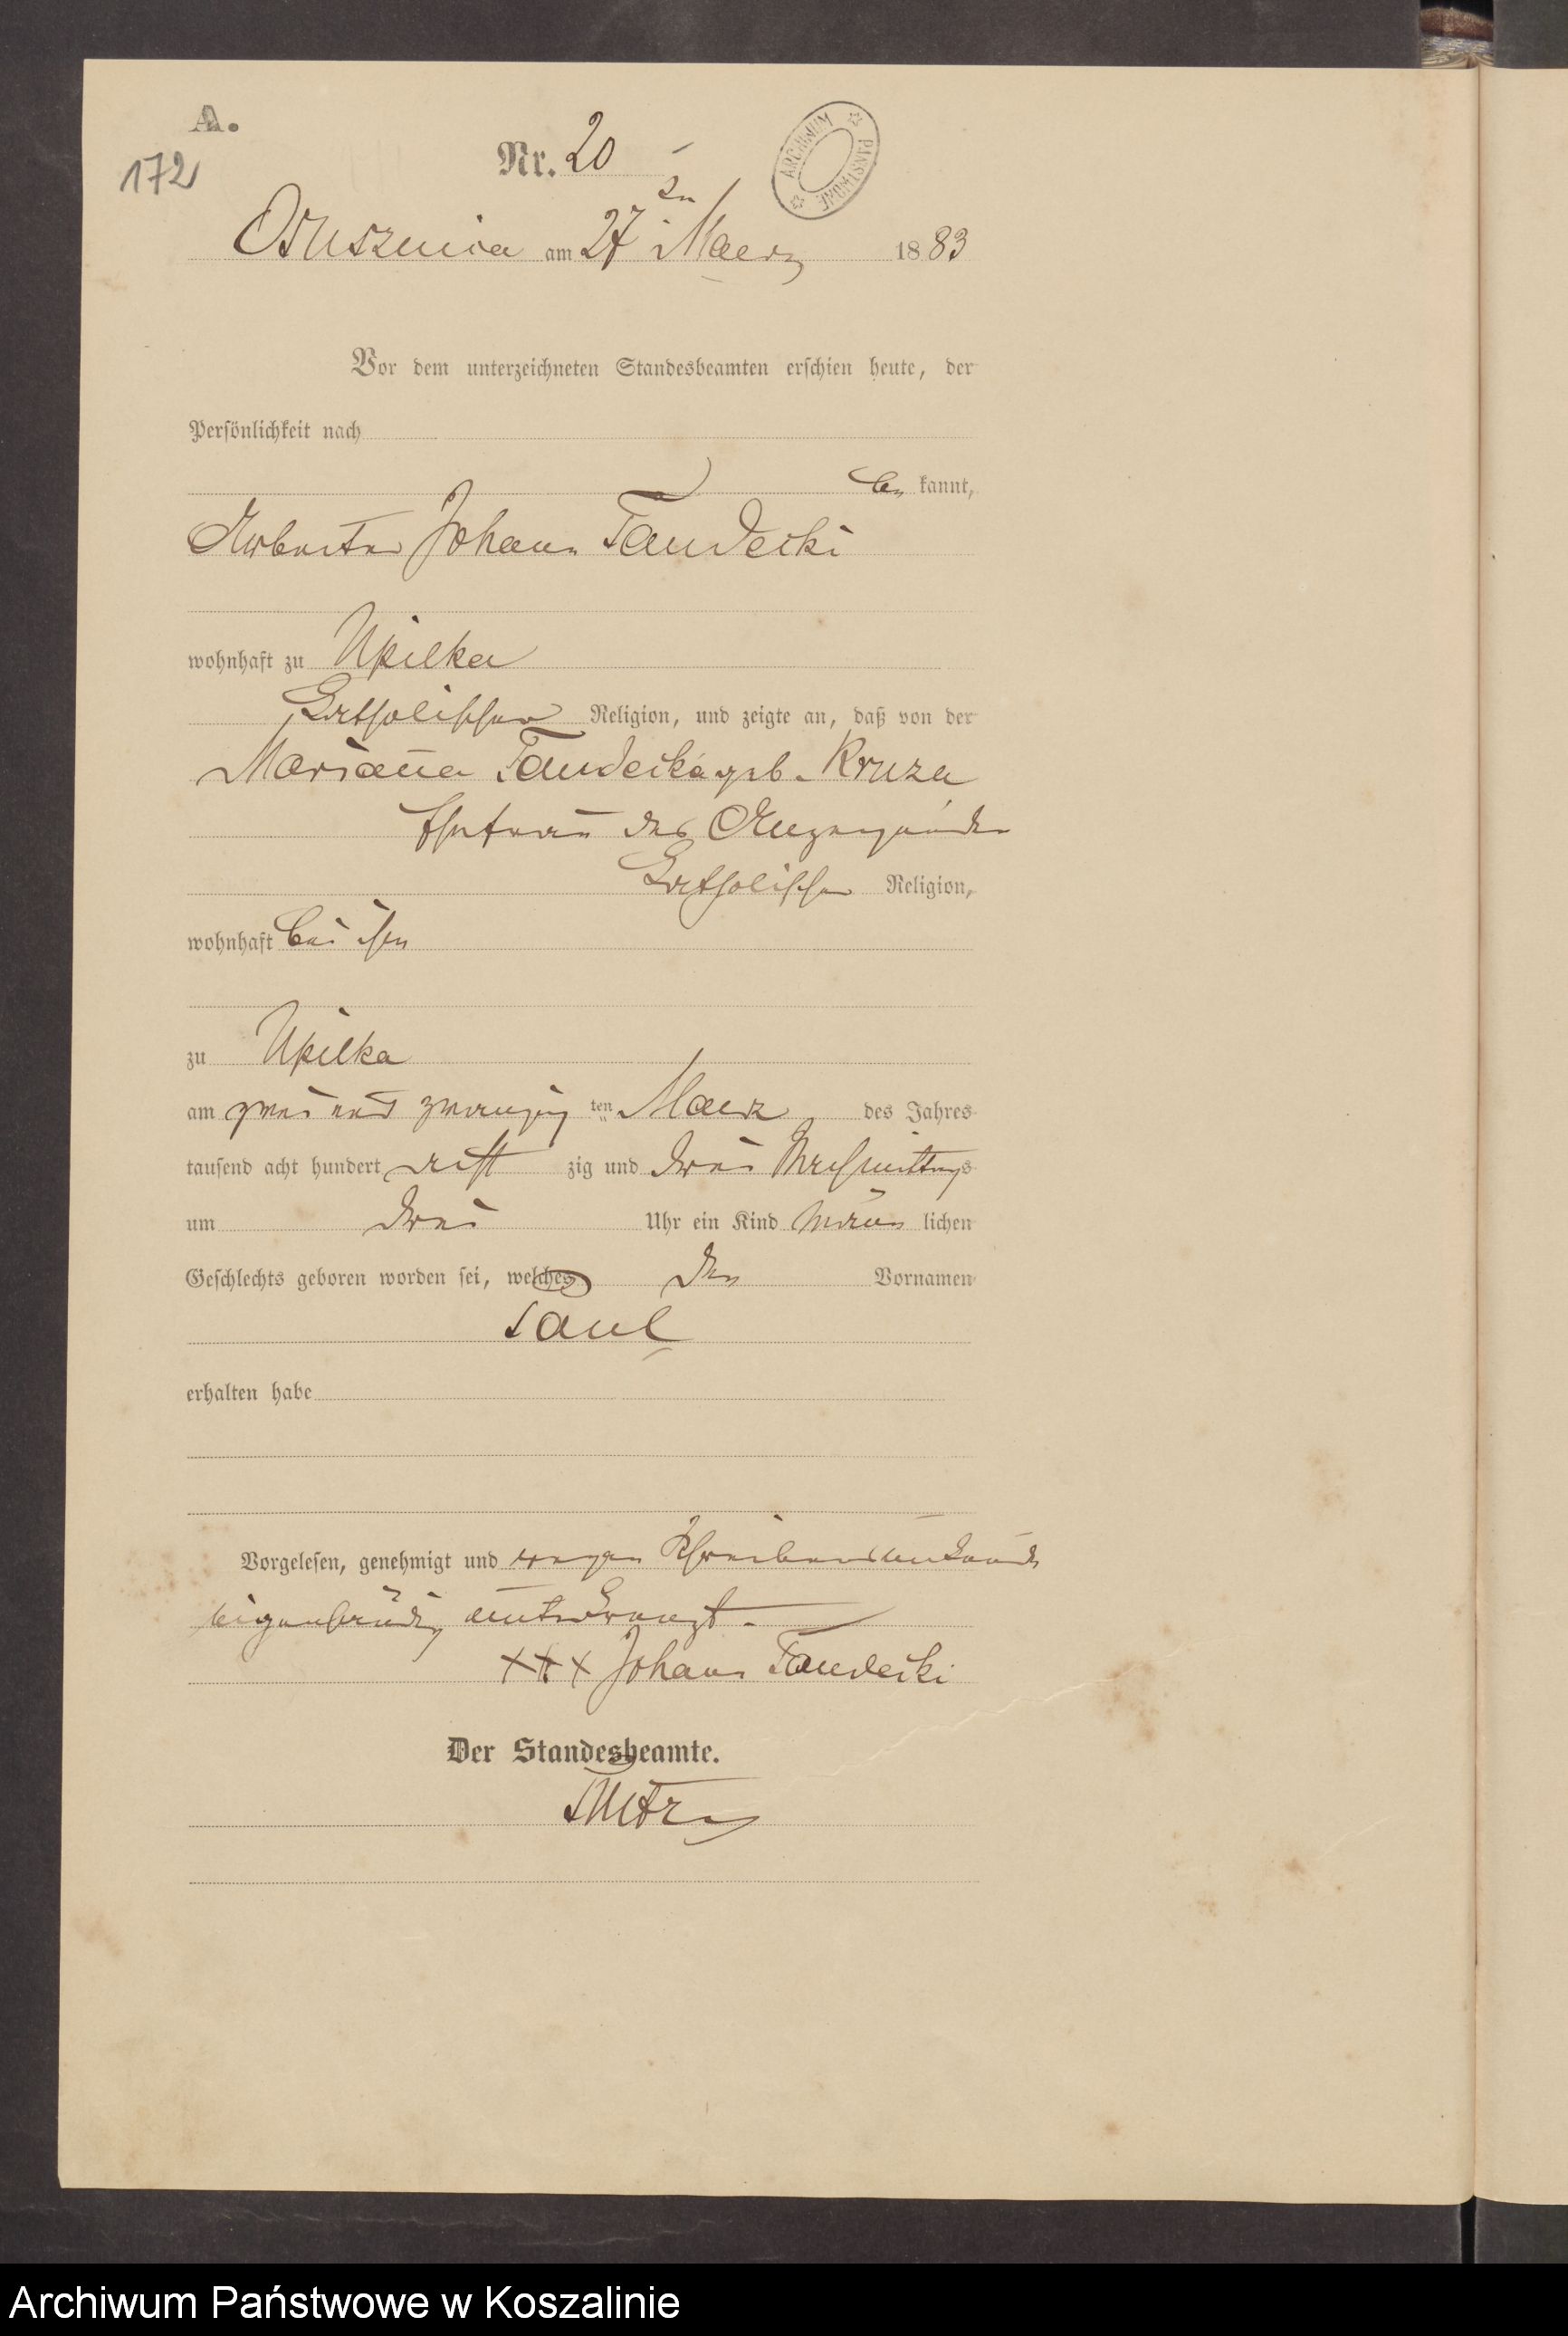 A.
172
Nr. 20
ARCHIWUM PAŃSTWOWE
Osusznica am 27 ten Maerz 1883
Vor dem unterzeichneten Standesbeamten erschien heute, der
Persönlichkeit nach
be kannt,
Arbeiter Johann Tandecki
wohnhaft zu Upilka
katholischer Religion, und zeigte an, daß von der
Marianna Tandecka geb. Kruza
Ehefrau des Anzeigenden
katholischer Religion,
wohnhaft bei ihm
zu Upilka
am zwei und zwanzig ten Maerz des Jahres
tausend acht hundert acht zig und drei Nachmittags
um drei Uhr ein Kind männ lichen
Geschlechts geboren worden sei, welches den Vornamen
Paul
erhalten habe
Vorgelesen, genehmigt und wegen Schreibensunkunde
eigenhändig unterkreuzt.
XXX Johann Tandecki
Der Standesbeamte.
Archiwum Państwowe w Koszalinie